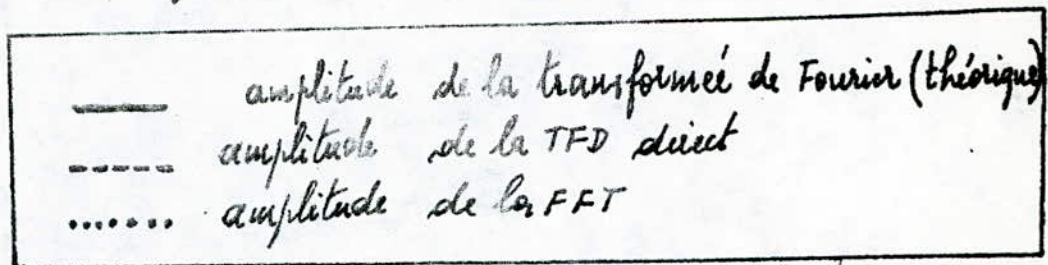 amplitude de la transformeé de Fourier (théorique)
amplitude de la TFD direct
amplitude de la FFT